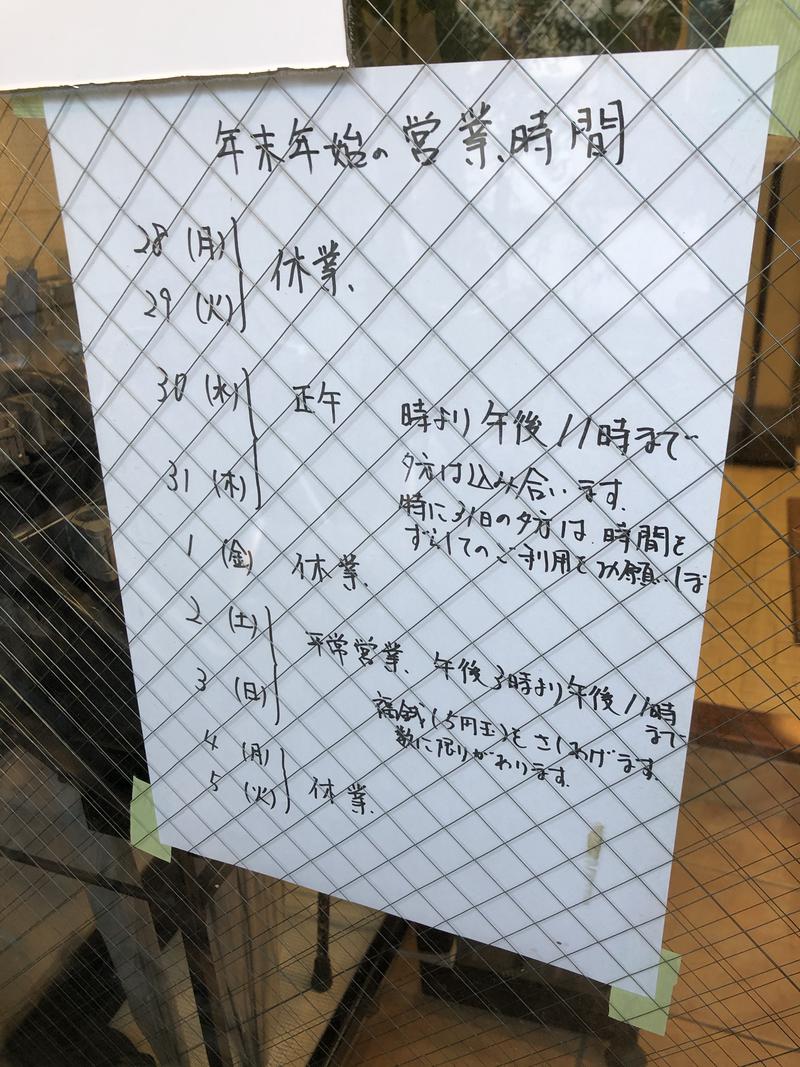 年末年始の営業時間
28 (月)
29 (火)
休業、
30 (水)
31 (木)
正午 時より午後11時まで
夕方は込み合います。
特に31日の夕方は、時間を
ずらしてのご利用をお願いしま
1 (金) 休業、
2 (土)
3 (日)
平常営業、午後3時より午後11時
まで
福銭(5円玉)をさしあげます。
数に限りがあります。
4 (月)
5 (火)
休業、